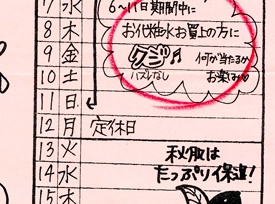 7 水
6～11日期間中に
8 木
お化粧水お買上の方に
9 金
クジ♬ 何が当たるか
10 土
ハズレなし お楽しみ♡
11 日
12 月 定休日
13 火
秋服は
14 水
たっぷり保湿!
15 木